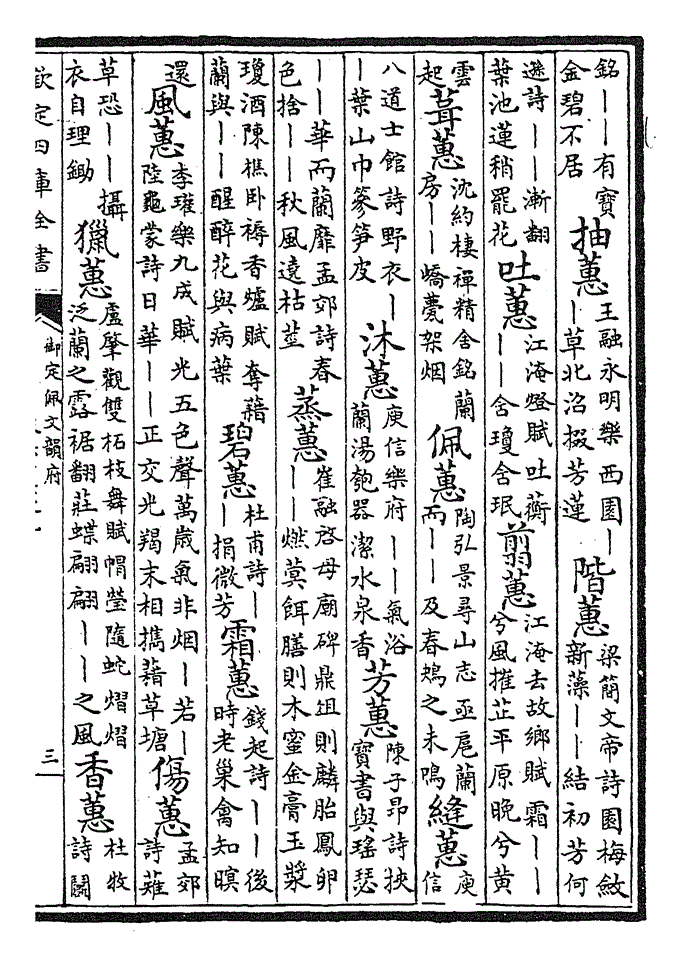 銘丨丨有寶金碧不居 抽蕙 王融永明樂西園丨丨草北沼掇芳蓮 階蕙 梁簡文帝詩園梅斂新藻丨丨結初芳何
遜詩丨丨漸翻葉池蓮稍罷花 吐蕙 江淹燈賦吐蘅丨舍瓊舍珉 翦蕙 江淹去故鄉賦霜丨丨兮風摧芷平原晚兮黄
雲起 葺蕙 沈約棲禪精舍銘蘭房丨丨嶠甍架烟 佩蕙 陶弘景尋山志丞扈蘭而丨丨及春鴂之未鳴 縫蕙 庾信
八道士館詩野衣丨丨葉山巾篸笋皮 沐蕙 庾信樂府丨丨氣浴蘭湯匏器潔水泉香 芳蕙 陳子昂詩挾寶書與瑤瑟
丨丨華而蘭靡孟郊詩春色捨丨丨秋風遶枯莖 蒸蕙 崔融啓母廟碑鼎俎則麟胎鳳卵丨丨燃蓂餌膳則木蜜金膏玉漿
瓊酒陳樵卧褥香爐賦奪藉蘭與丨丨醒醉花與病葉 碧蕙 杜甫詩丨丨捐微芳 霜蕙 錢起詩丨丨後時老巢禽知暝
還 風蕙 李瓘樂九成賦光五色聲萬歲氣非烟丨若丨陸龜蒙詩日華丨丨正交光羯末相擕藉草塘 傷蕙 孟郊詩薙
草恐丨丨攝衣自理鋤 獵蕙 盧肇觀雙柘枝舞賦帽瑩隨蛇熠熠泛蘭之露裾翻莊蝶翩翩丨丨之風 香蕙 杜牧詩闗
欽定四庫全書
御定佩文韻府
三